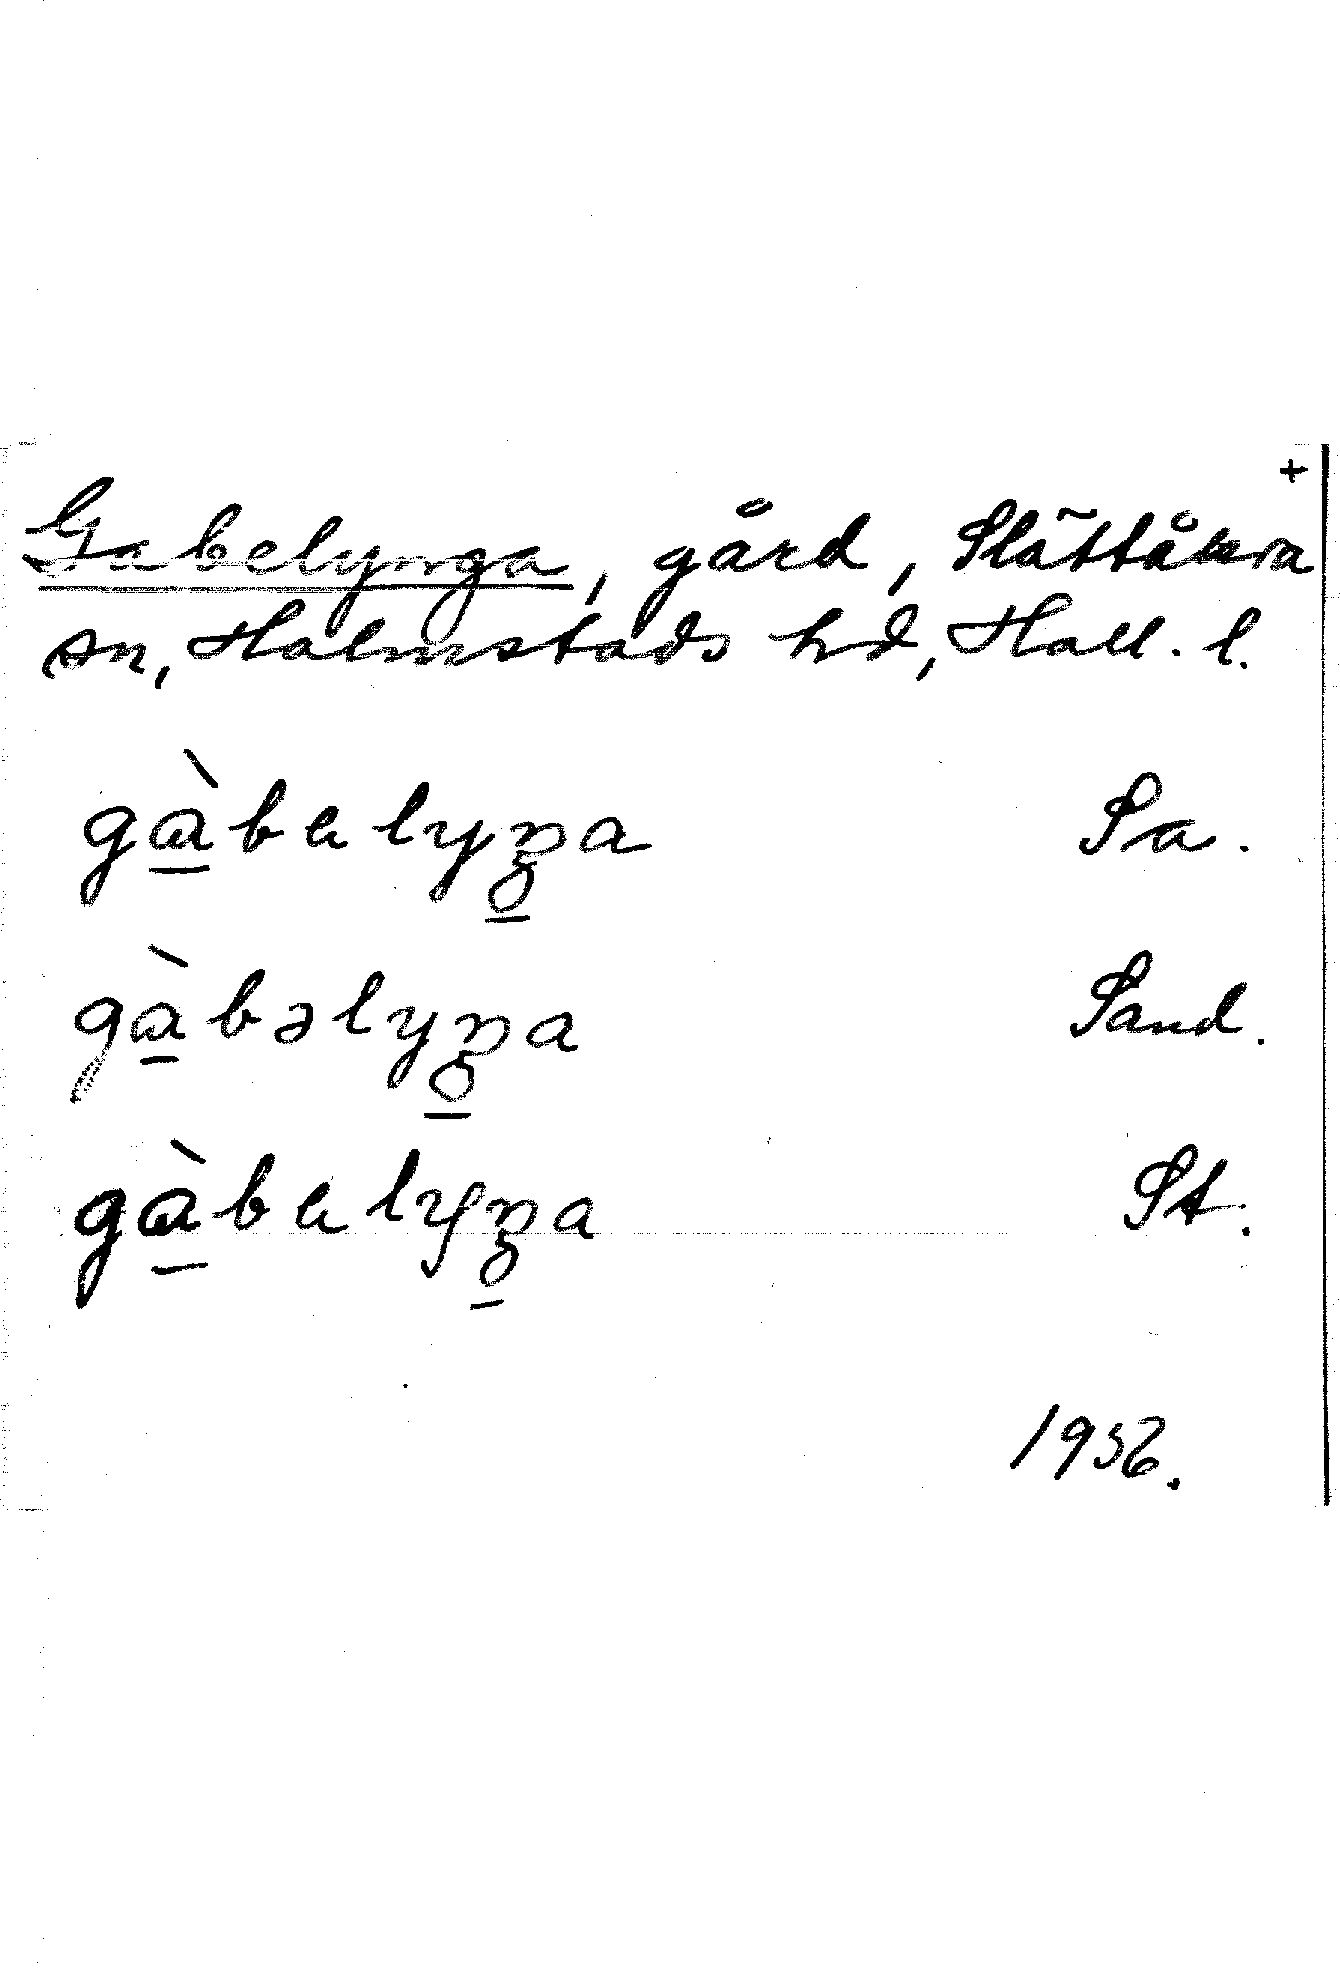 +
Gabelynga, gård, Slättåkra
sn, Halmstads hd, Hall. l.
gàbelyŋa Sa.
gàbəlyŋa Sand.
gàbelyŋa St.